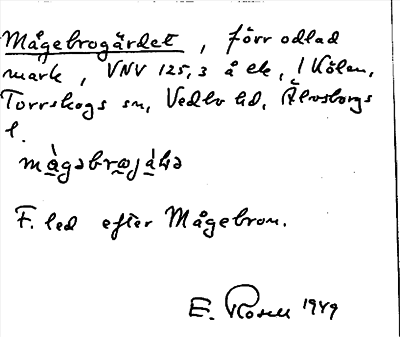 Mågebrogärdet, förr odlad
mark, VNV 125,3 å ek, / Kölen,
Torrskogs sn, Vedbo hd, Älvsborgs
l.
F. led efter Mågebron.
E. Rosell 1949